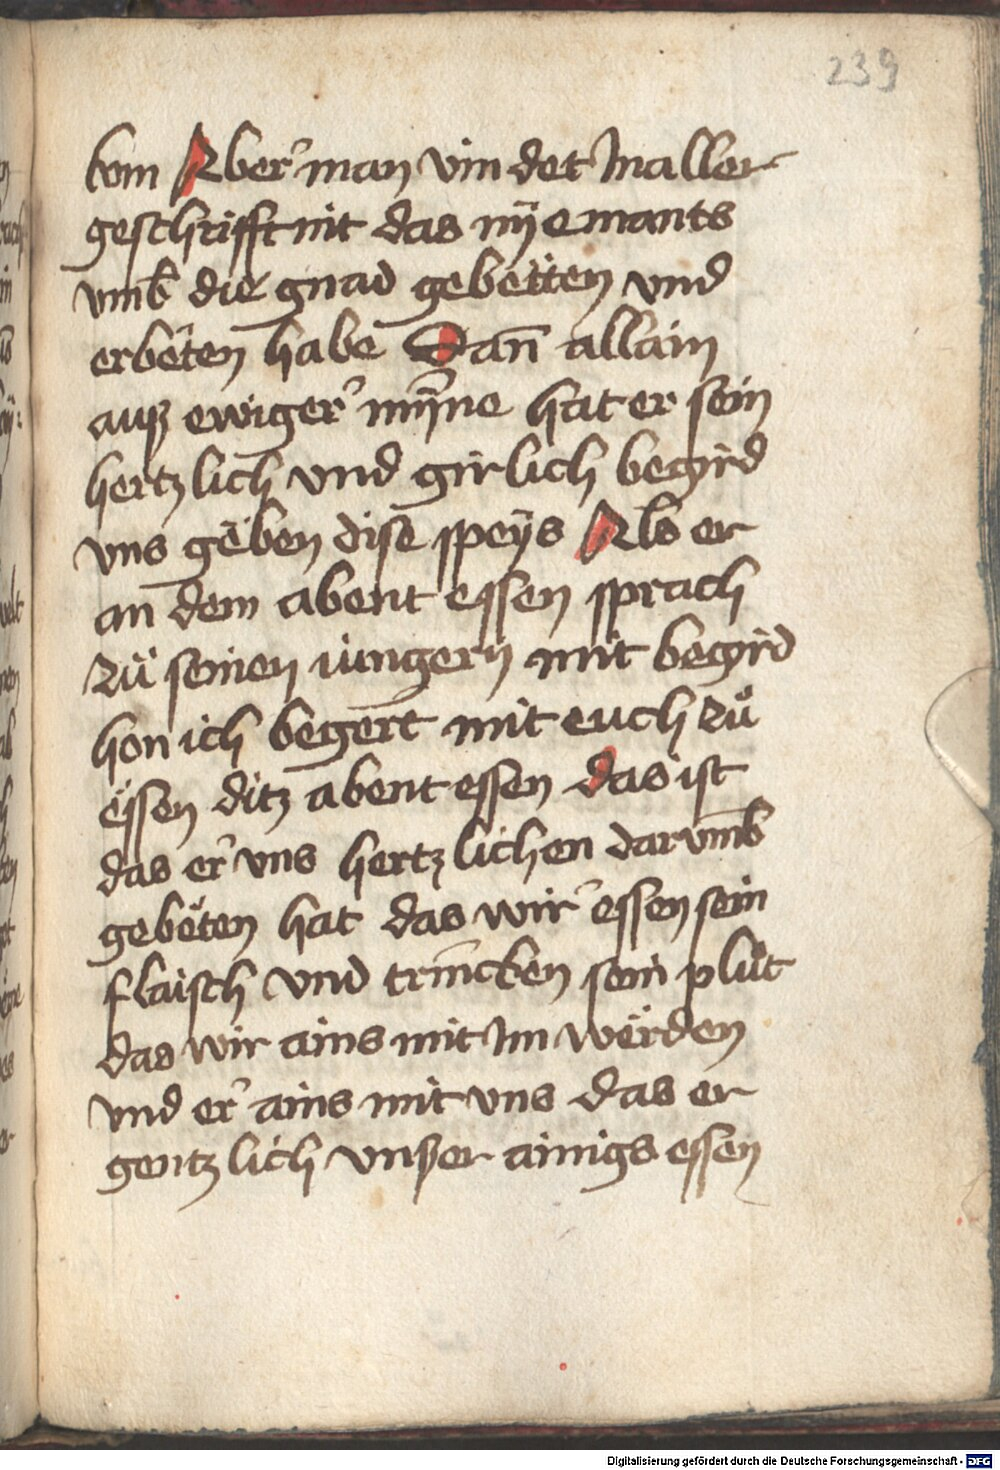 239
kom Aber man vindet Jn aller
geschrifft nit das nÿemants
vmb die gnad gebetten vnd
erbeten habe Dan̄ allain
auß ewiger mÿn̄e hat er sein
hertzlich vnd girlich begird
vns geben dise speÿs Als er
an dem abent essen sprach
zů seinen iungern mit begird
hon ich begert mit euch zů
essen ditz abent essen das ist
das er vns hertzlichen darvmb
gebeten hat das wir essen sein
flaisch vnd trincken sein plůt
das wir ains mit Jm werden
vnd er ains mit vns das er
gentzlich vnßer ainigs essen
Digitalisierung gefördert durch die Deutsche Forschungsgemeinschaft - DFG